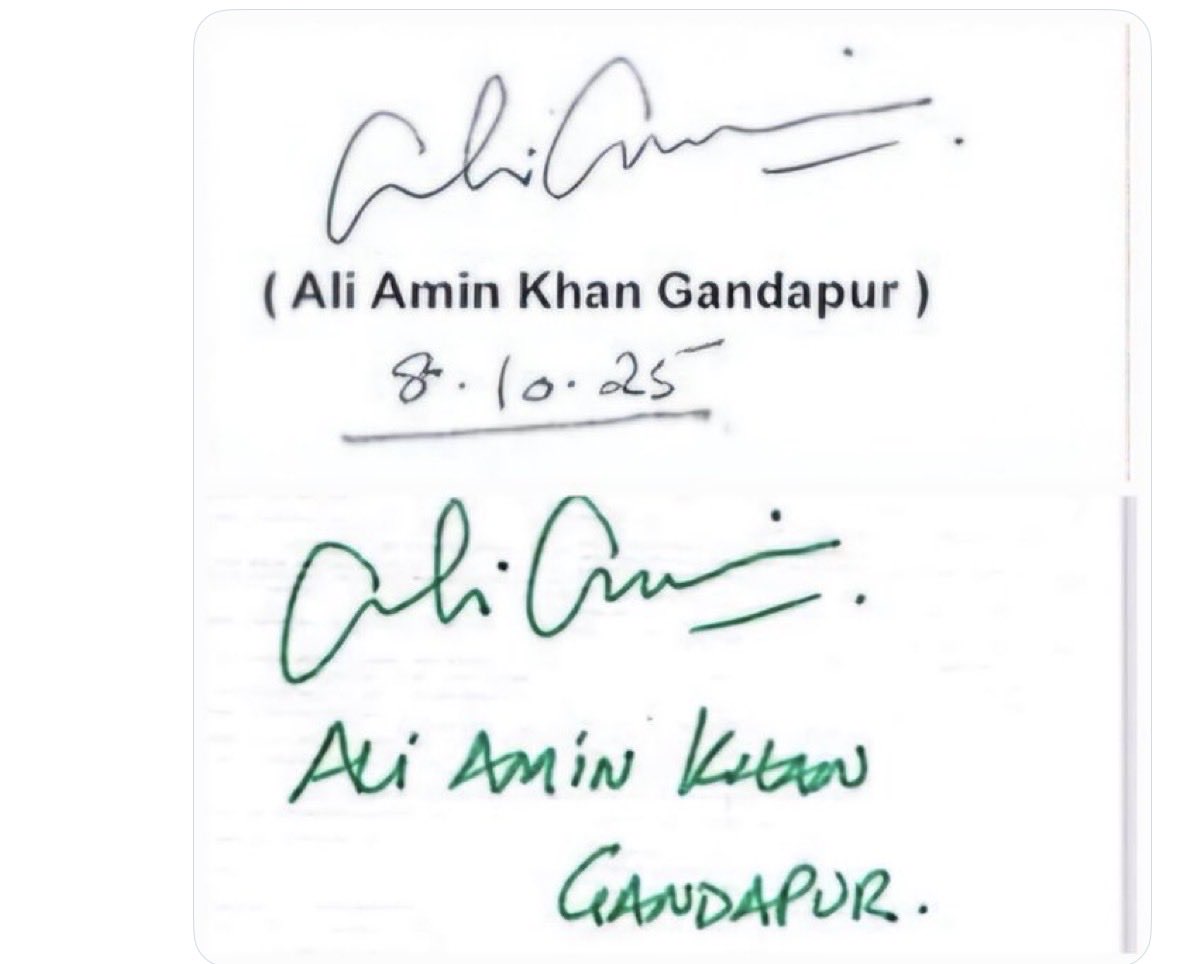 Ali Amin
( Ali Amin Khan Gandapur )
8.10.25
Ali Amin
ALi AMiN KHAN
GANDAPUR.